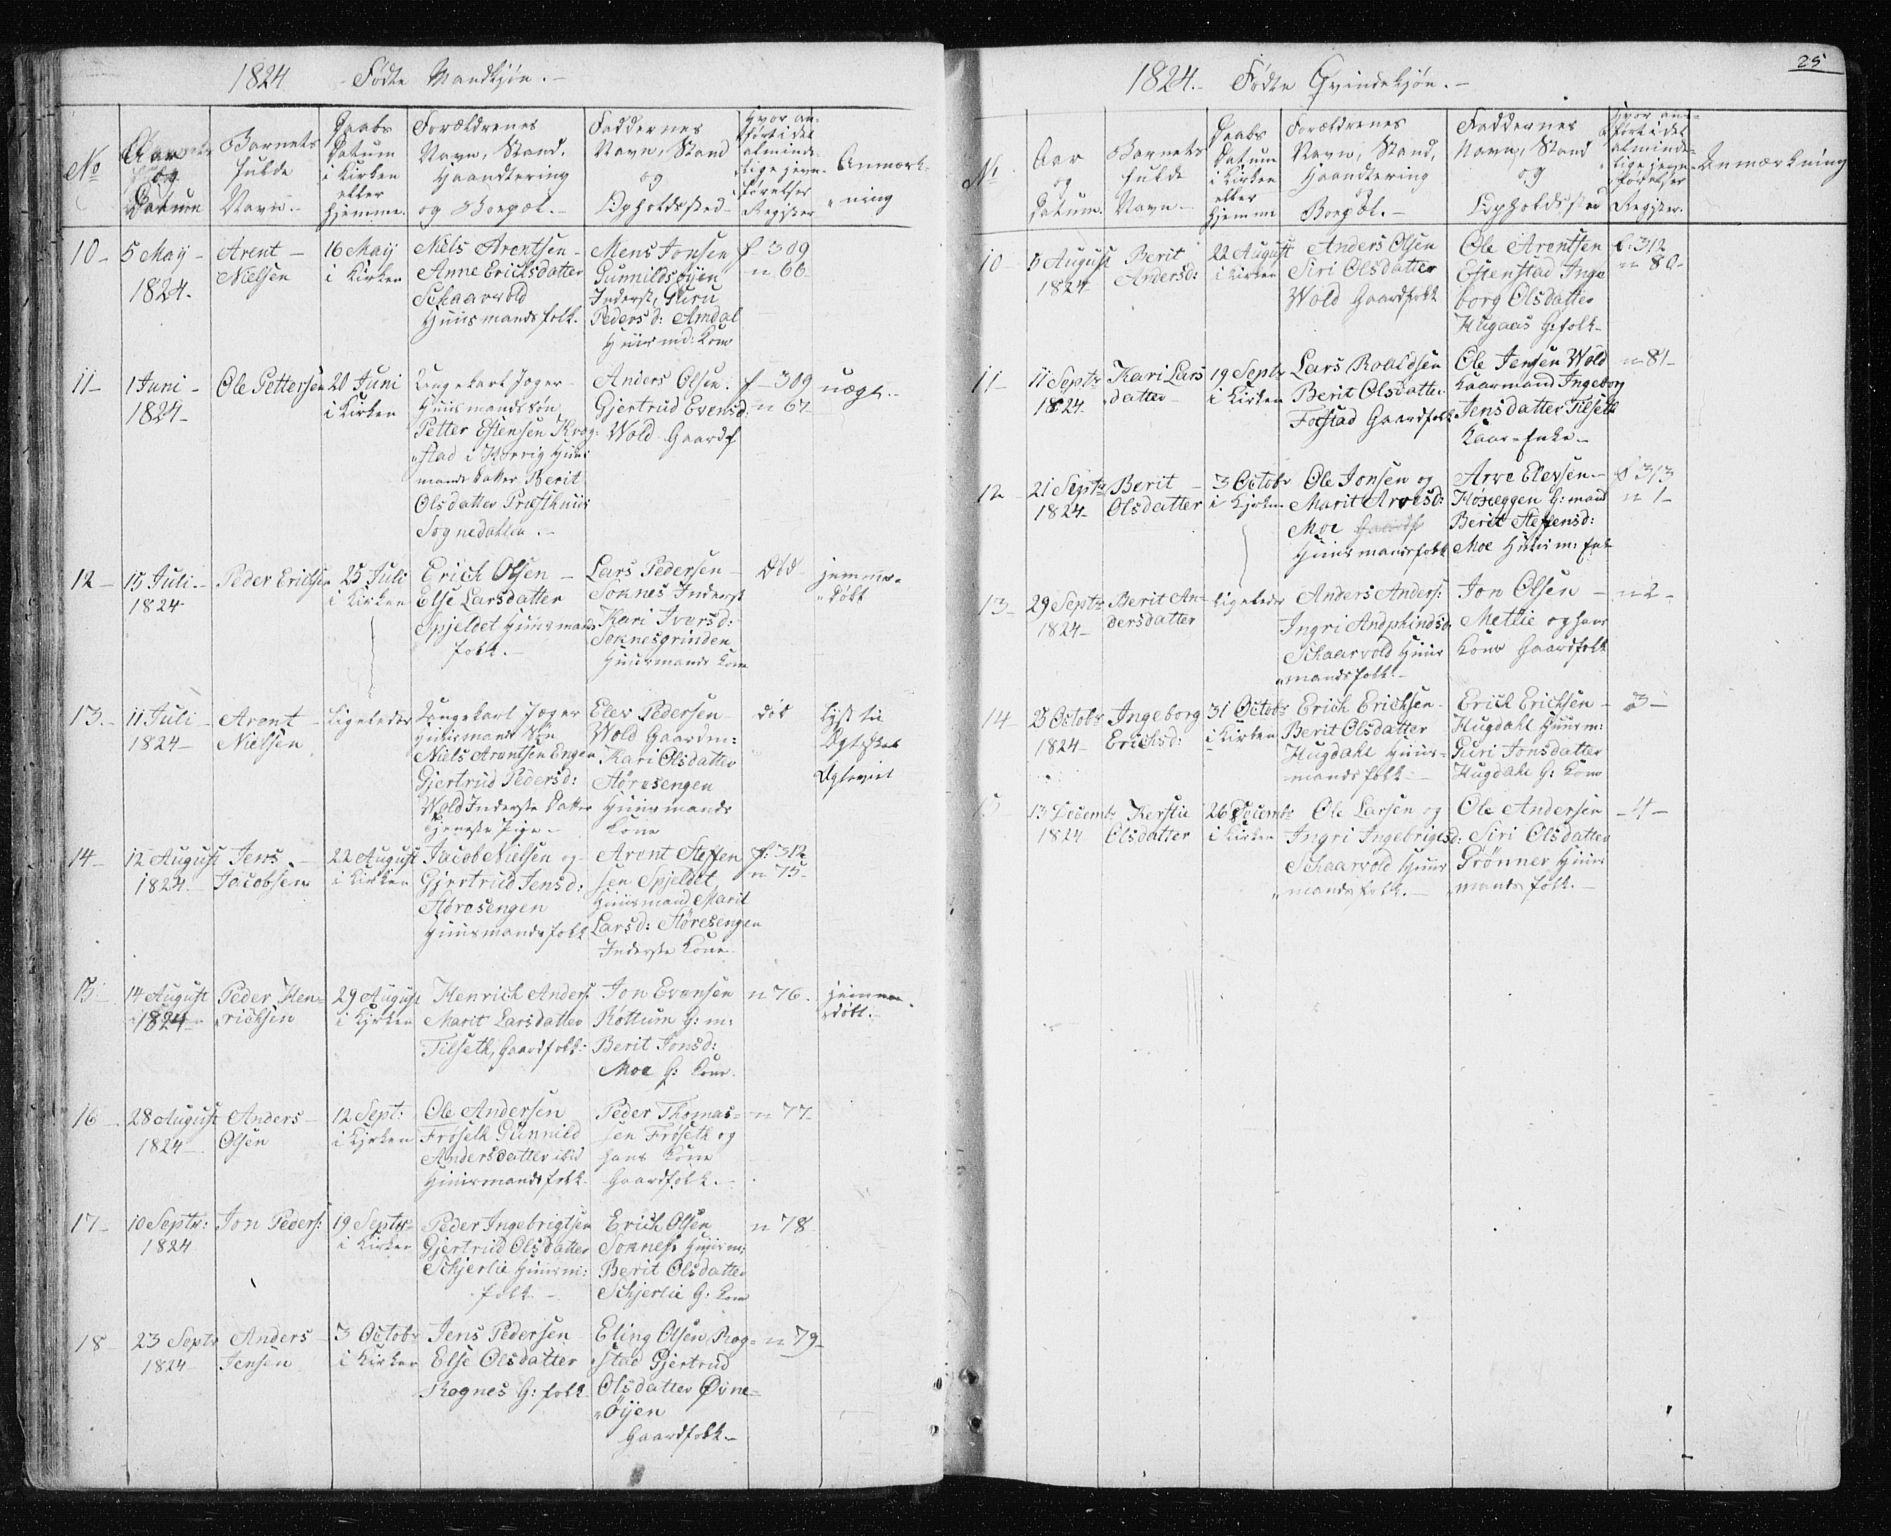 1824 - Fødte Mandkjøn. -
No
Aar
og
Datum
Barnets
fulde
Navn. -
Daabs
Datum
i Kirken
eller
hjemme.
Forældrenes
Navn, Stand,
Haandtering
og Boepæl. -
Faddernes
Navn, Stand
og
Opholdssted -
Hvor an-
ført i det
alminde-
lige jevn-
førelses
Register
Anmærk-
ning
10 -
5 May -
1824.
Arent -
Nielsen
16 May
i Kirken
Niels Arentsen -
Anne Ericksdatter
Schaarvold
Huusmandsfolk.
Mens Jonsen
Gunnildsøyen
Inderst, Guru
Pedersd: Amdal
Huusmd: Kone
f 309
n 66
11 -
1 Juni -
1824 -
Ole Pettersen
20 Juni
i Kirken
Ungekarl Jæger
Huusmandssøn
Petter Estensen Krog-
stad i Horrig Huus-
mands datter Berit
Olsdatter Præsthuus
Sognedahlen. -
Anders Olsen.
Gjertrud Evensd:
Wold Gaardf
f - 309
n 67
uægt. -
12 -
15 Juli -
1824
Peder Erichsen
25 Juli
i Kirken
Erich Olsen -
Else Larsdatter
Spjeldet Huusmands
folk. -
Lars Pedersen -
Soknes Inderst
Kari Ivarsd:
Soknesgrinden
Huusmands Kone
hjemme-
døbt
13. -
11 Juli -
1824 -
Arent -
Nielsen
ligeledes
Ungekarl Jæger
Huusmands Søn
Niels Arentsen Engen
Gjertrud Pedersd:
Wold Inderste datter
tjeneste Pige -
Elev Pedersen -
Wold Gaardm:
Kari Olsdatter
Størosengen
Huusmands
Kone
14 -
12 August
1824. -
Jens -
Jacobsen
22 August
i Kirken
Jacob Nielsen og
Gjertrud Jensd:
Størosengen
Huusmandsfolk
Arent Steffen
sen Spjeldet
Huusmand, Marit
Larsd: Størosengen
Inderste Kone
f: 312
n 75 -
15 -
14 August
1824
Peder Hen-
richsen
29 August
i Kirken
Henrich Anders:
Marit Larsdatter
Tilseth, Gaardfolk:
Jon Evensen
Rottum G: m:
Berit Jonsd:
Moe G: Kone.
n 76.
hjemme-
døbt. -
16 -
28 August
1824 -
Anders -
Olsen
12 Sept:
i Kirken
Ole Andersen
Frøseth Gunnild
Andersdatter ibid
Huusmandsfolk
Peder Thomas-
sen Frøseth og
hans Kone
Gaardfolk. -
n 77 -
17 -
10 Septr:
1824
Jon Peders:
19 Septr
i Kirken
Peder Ingebrigtsen
Gjertrud Olsdatter
Schjerlie Huusm:
folk -
Erich Olsen
Soknes Huusm:
Berit Olsdatter
Schjerlie G: Kone
n 78 -
18 -
23 Septr
1824
Anders -
Jensen
3 Octobr
i Kirken
Jens Pedersen
Else Olsdatter
Rognes G: folk
Eling Olsen Rog-
stad Gjertrud
Olsdatter Øvne-
øyen
Gaardfolk. -
n 79 -
25
1824. - Fødte Qvindekjøn. -
No
Aar
og
Datum.
Barnets
fulde
Navn. -
Daabs
Datum
i Kirken
eller
hjemme
Forældrenes
Navn, Stand,
Haandtering
og
Boepæl. -
Faddernes
Navn, Stand
og
Opholdssted
Hvor an-
ført i det
alminde-
lige jevn-
førelses
Register.
Anmærkning
10 -
5 August
1824
Berit
Andersd:
22 August
i Kirken
Anders Olsen
Siri Olsdatter
Wold Gaardfolk
Ole Arentsen
Estenstad Inge
borg Olsdatter
Hugaas G: folk -
f: 312
n 80 -
11 -
11 Septr
1824
Kari Lars
datter -
19 Septr
i Kirken
Lars Roaldsen
Berit Olsdatter
Forstad Gaardfolk
Ole Jensen Wold
Kaarmand Ingeborg
Jensdatter Tilseth
Kaar-Enke -
n 81 -
12 -
21 Septr
1824 -
Berit -
Olsdatter
3 Octobr
i Kirken
Ole Jonsen og
Marit Arvesd:
Moe
Huusmandsfolk
Arve Elevsen -
Honeggen G: mand
Berit Steffensd:
Moe Huusm:
f 313
n 1 -
13 -
29 Septr
1824 -
Berit An-
dersdatter
ligeledes
Anders Anders:
Ingri Andphindsd:
Schaarvold Huus
mandsfolk -
Jon Olsen -
Mettie og hans
Kone Gaardfolk
n 2 -
14
25 Octobr
1824 -
Ingeborg
Erichsd:
31 Octobr
i Kirken
Erich Erichsen -
Berit Olsdatter
Hugdahl Huus-
mandsfolk -
Erich Erichsen -
Hugdahl Huusm:
Guri Jonsdatter
Hugdahl G: Kone
3 -
15
13 Decembr
1824
Kerstie
Olsdatter
26 Decembr
i Kirken
Ole Larsen og
Ingri Ingebrigtsd:
Schaarvold Huus
mandsfolk. -
Ole Andersen
Siri Olsdatter
Grønner Huus
mandsfolk. -
4 -